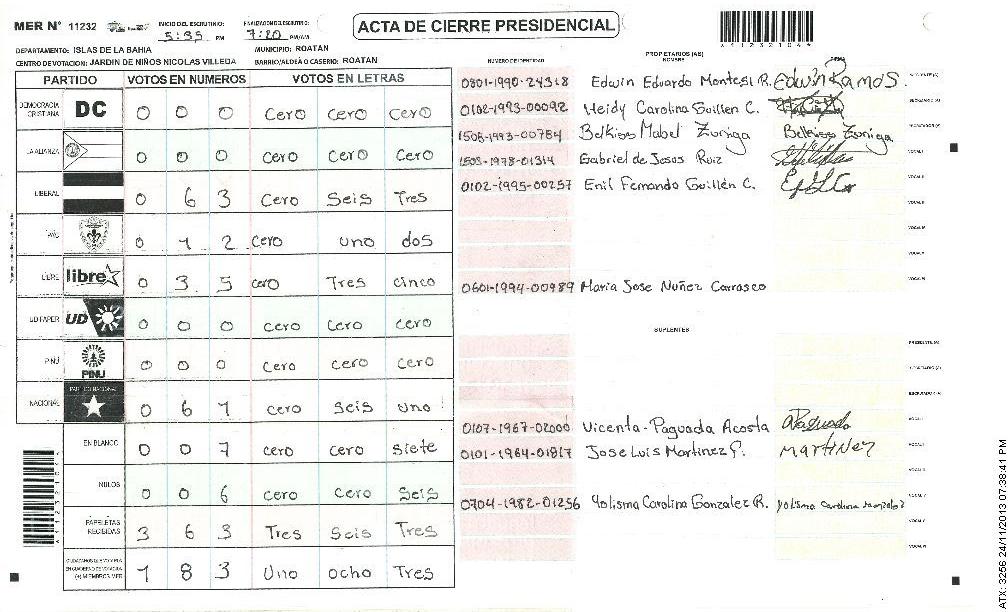 MER N° 11232
INICIO DEL ESCRUTINIO: 5:35 PM
FINALIZACION ESCRUTINIO: 7:20 PM/AM
ACTA DE CIERRE PRESIDENCIAL
DEPARTAMENTO: ISLAS DE LA BAHIA
MUNICIPIO: ROATAN
CENTRO DE VOTACION: JARDIN DE NIÑOS NICOLAS VILLEDA
BARRIO/ALDEA O CASERIO: ROATAN
PARTIDO VOTOS EN NUMEROS VOTOS EN LETRAS
DEMOCRACIA CRISTIANA DC 0 0 0 Cero cero cero
LA ALIANZA 0 0 0 Cero Cero Cero
LIBERAL 0 6 3 Cero Seis Tres
PAC 0 1 2 Cero uno dos
LIBRE libre 0 3 5 Cero Tres cinco
UD FAPER UD 0 0 0 cero cero cero
PINU PINU 0 0 0 cero cero cero
NACIONAL PARTIDO NACIONAL 0 6 1 cero seis uno
EN BLANCO 0 0 7 cero cero siete
NULOS 0 0 6 cero cero Seis
PAPELETAS RECIBIDAS 3 6 3 Tres Seis Tres
(+) MIEMBROS MER 1 8 3 Uno ocho Tres
NUMERO DE IDENTIDAD
PROPIETARIOS (AS)
NOMBRE
FIRMA
0801-1990-24318 Edwin Eduardo Montesi R. Edwin Ramos
0102-1993-00092 Heidy Carolina Guillen C.
1508-1993-00784 Belkiss Mabel Zuniga Belkiss Zuniga
1503-1978-01314 Gabriel de Jesus Ruiz
0102-1995-00257 Enil Fernando Guillén C.
0601-1994-00989 Maria Jose Nuñez Carrasco
SUPLENTES
0107-1967-02000 Vicenta Paguada Acosta Paguada
0101-1964-01817 Jose Luis Martinez G. MARTINEZ
0704-1982-01256 Yolisma Carolina Gonzalez R. Yolisma Carolina Gonzalez
ATX: 3256 24/11/2013 07:38:41 PM